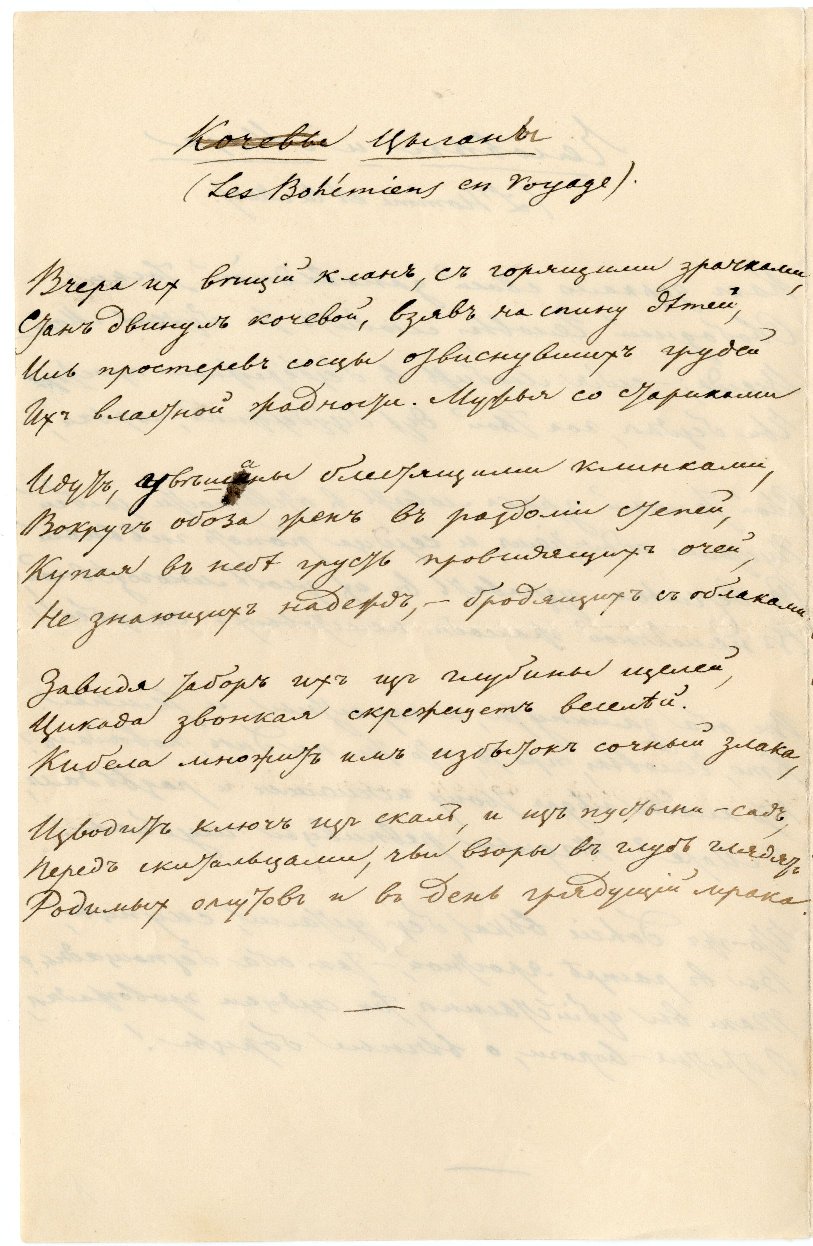 Кочевье Цыганы
(Les Bohémiens en Voyage).
Вчера их вѣщій кланъ, съ горящими зрачками,
Станъ двинулъ кочевой, взявъ на спину дѣтей,
Иль простеревъ сосцы отвиснувшихъ грудей
Ихъ властной жадности. Мужья со стариками
Идутъ, увѣшаны блестящими клинками,
Вокругъ обоза женъ въ раздоліи степей,
Купая въ небѣ грусть провидящихъ очей,
Не знающихъ надеждъ, – бродящихъ съ облаками.
Завидя таборъ ихъ изъ глубины щелей,
Цикада звонкая скрежещетъ веселѣй.
Кибела множитъ имъ избытокъ сочный злака,
Изводитъ ключъ изъ скалъ, и изъ пустыни – садъ,
Передъ скитальцами, чьи взоры въ глубь глядятъ
Родимых омутовъ и въ день грядущій мрака.